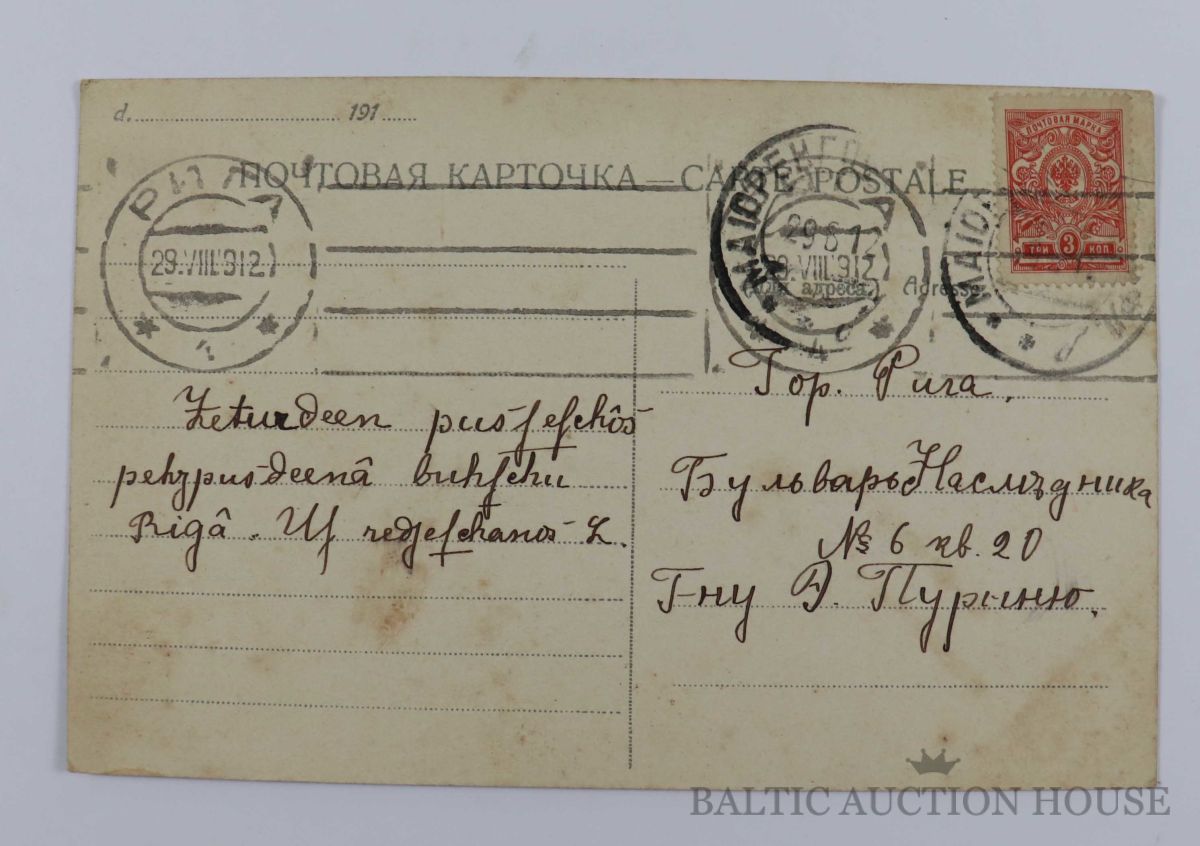 d. 191
ПОЧТОВАЯ КАРТОЧКА — CARTE POSTALE
РИГА
29.VIII.912
МАІОРЕНГОФ
29 8 12
29.VIII.912
ПОЧТОВАЯ МАРКА
ТРИ 3 КОП.
МАІОР
адреса. Adresse
Zeturdeen pusſeſchôs
pehzpusdeenâ buhſchu
Rigâ. Uſ redſeſchanos Z.
Гор. Рига.
Бульваръ Наслѣдника
№ 6 кв. 20
Г-ну Э. Пуриню.
BALTIC AUCTION HOUSE